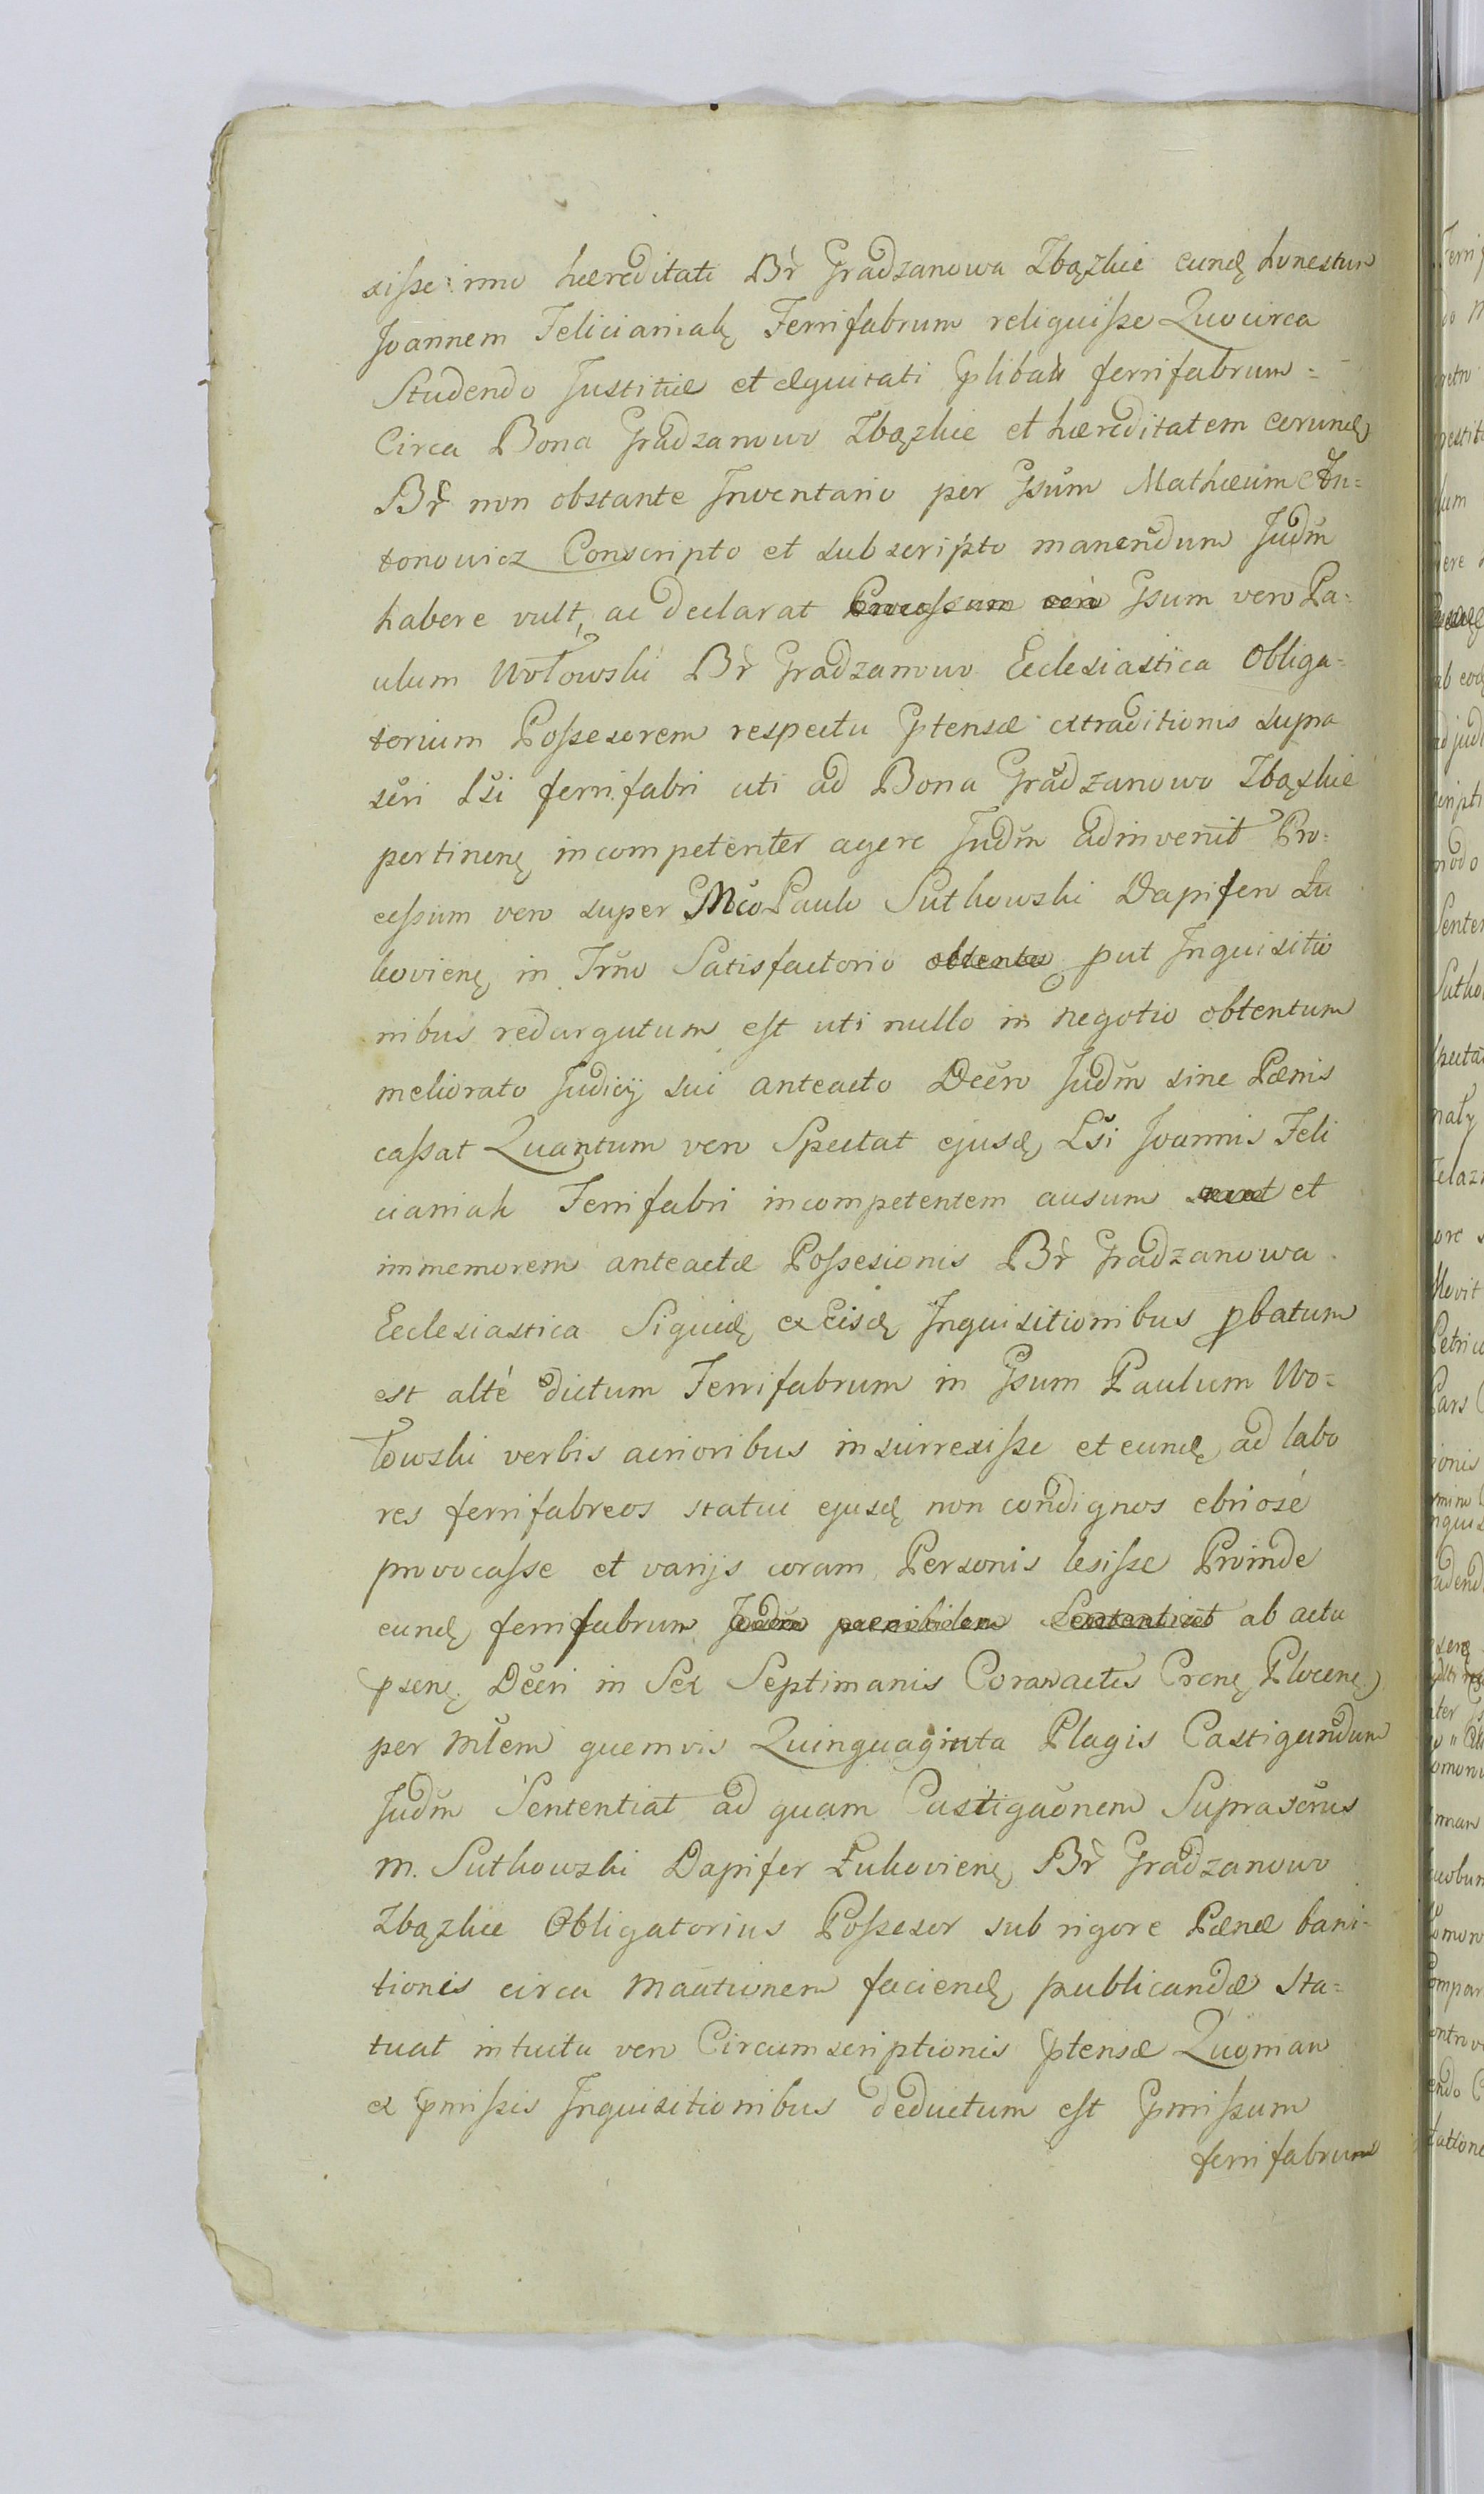 sisse imo hæreditati Br̃ Gradzanowa Zbązkie eund honestum
Joannem Felicianiak Ferrifabrum reliquisse Quocirca
Studendo Justitiæ et æquitati plibatu ferrifabrum =
Circa Bona Gradzanowo Zbązkie et hæreditatem eorund
Br̃ non obstante Inventario per Gsum Mathæum An=
tonowicz Conscripto et subscripto manendum Judm
habere vult, ac declarat Processum vero Gsum vero Pa=
ulum Wołowski Br̃ Gradzanowo Ecclesiastica Obliga=
torium Possesorem respectu ptensæ extraditionis supra
scri Lsi ferrifabri uti ad Bona Gradzanowo Zbązkie
pertinen incompetenter agere Judm adinvenit Pro=
cessum vero super Mco Paulo Sutkowski Dapifero Łu
kovien in Trno Satisfactorio obtento put Inquisitio
nibus redargutum est uti nullo in negotio obtentum
meliorato Judicij sui anteacto Decro Judm sine Pænis
cassat Quantum vero Spectat ejusd Lsi Joannis Feli
cianiak Ferrifabri incompetentem ausum et
immemorem anteactæ Possesionis Br̃ Gradzanowa
Ecclesiastica Siquid ex Eisd Inquisitionibus pbatum
est alté dictum Ferrifabrum in Gsum Paulum Wo=
łowski verbis acrioribus insurrexisse et eund ad labo
res ferrifabreos statui ejusd non condignos ebriosé
provocasse et varijs coram Personis lesisse Proinde
eund ferrifabrum Judm Sententiat ab actu
psen Decri in Sex Septimanis Coram actis Cren Plocen
per mlem quemvis Quinquaginta Plagis Castigandum
Judm Sententiat ad quam Castigaonem Suprascrus
M. Sutkowski Dapifer Łukovien Br̃ Gradzanowo
Zbązkie Obligatorius Possesor sub rigore Pænæ bani=
tionis circa Maationem faciend publicandæ sta=
tuat intuitu vero Circumscriptionis ptensæ Quoniam
ex pmissis Inquisitionibus deductum est pmissum
ferrifabrum